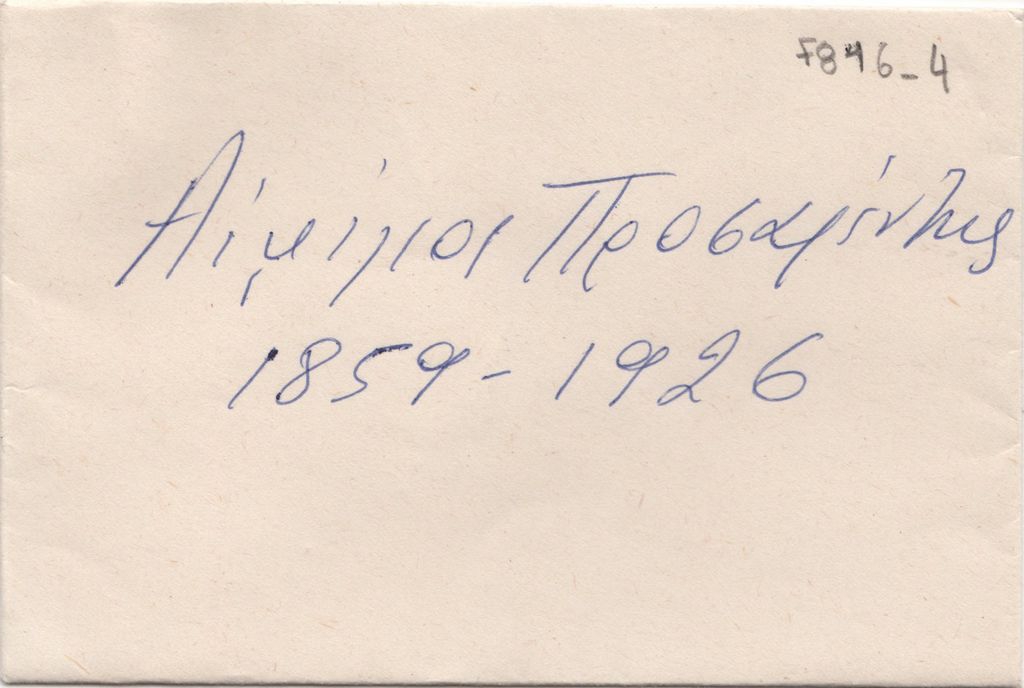 F846-4
Αἰμίλιος Προσαλέντης
1859-1926